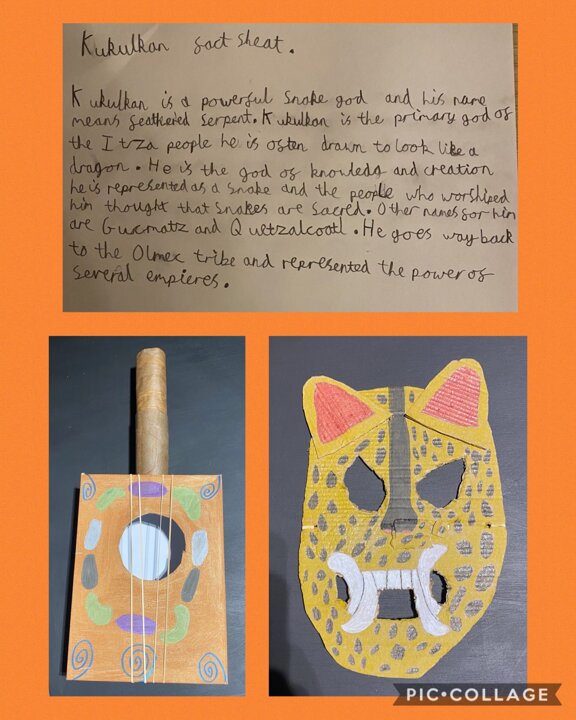 Kukulkan fact sheat.
Kukulkan is a powerful snake god and his name
means feathered serpent. Kukulkan is the primary god of
the Itza people he is often drawn to look like a
dragon. He is the god of knowledg and creation
he is represented as a snake and the people who worshiped
him thought that snakes are sacred. Other names for him
are Gucmatz and Quetzalcootl. He goes way back
to the Olmex tribe and represented the power of
several empieres.
PIC•COLLAGE